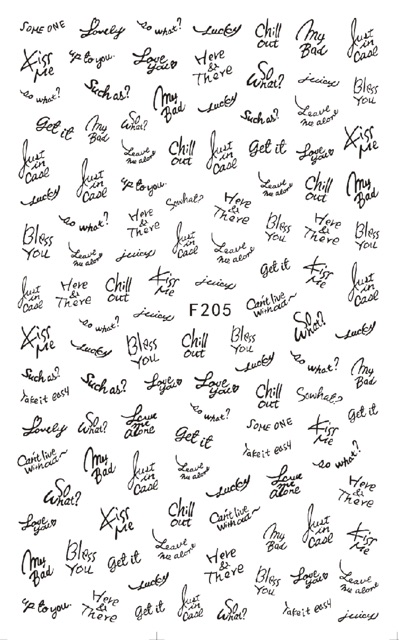 SOME ONE Lovely so what? Lucky Chill out My Bad Just in Case
Kiss Me up to you. Love you♥ Here & There So What? juicey Bless You
so what? Such as? My Bad Lucky Such as? Leave me alone
Get it My Bad So What? Kiss Me
Just in Case Leave me alone Chill out Just in Case Get it Love you♥
Lucky Just in Case up to you. Leave me alone Chill out My Bad
Sowhat? Here & There
Bless You so what? Here & There Just in Case Bless You Here & There Bless You
Leave me alone juicey Leave me alone
Just in Case Here & There Chill out Kiss Me juicey Get it Kiss Me Just in Case
so what? juicey F205 Can't live without~ So What?
Kiss Me Lucky Bless You Chill out Bless You Lucky
Lucky so what? My Bad
Such as? Such as? Love you♥ Love you♥ Chill out Sowhat?
Take it easy so what? Get it
Lovely So What? Leave me alone Get it SOME ONE Kiss Me
Take it easy
Can't live without~ My Bad Just in Case Leave me alone Lucky Leave me alone so what?
So What? Here & There
Love you♥ Kiss Me Chill out Can't live without~ Just in Case
My Bad Kiss Me
My Bad Bless You Get it Leave me alone Here & There
Lucky Bless You Love you♥ Leave me alone
up to you. Here & There Get it Just in Case Lucky Take it easy juicey